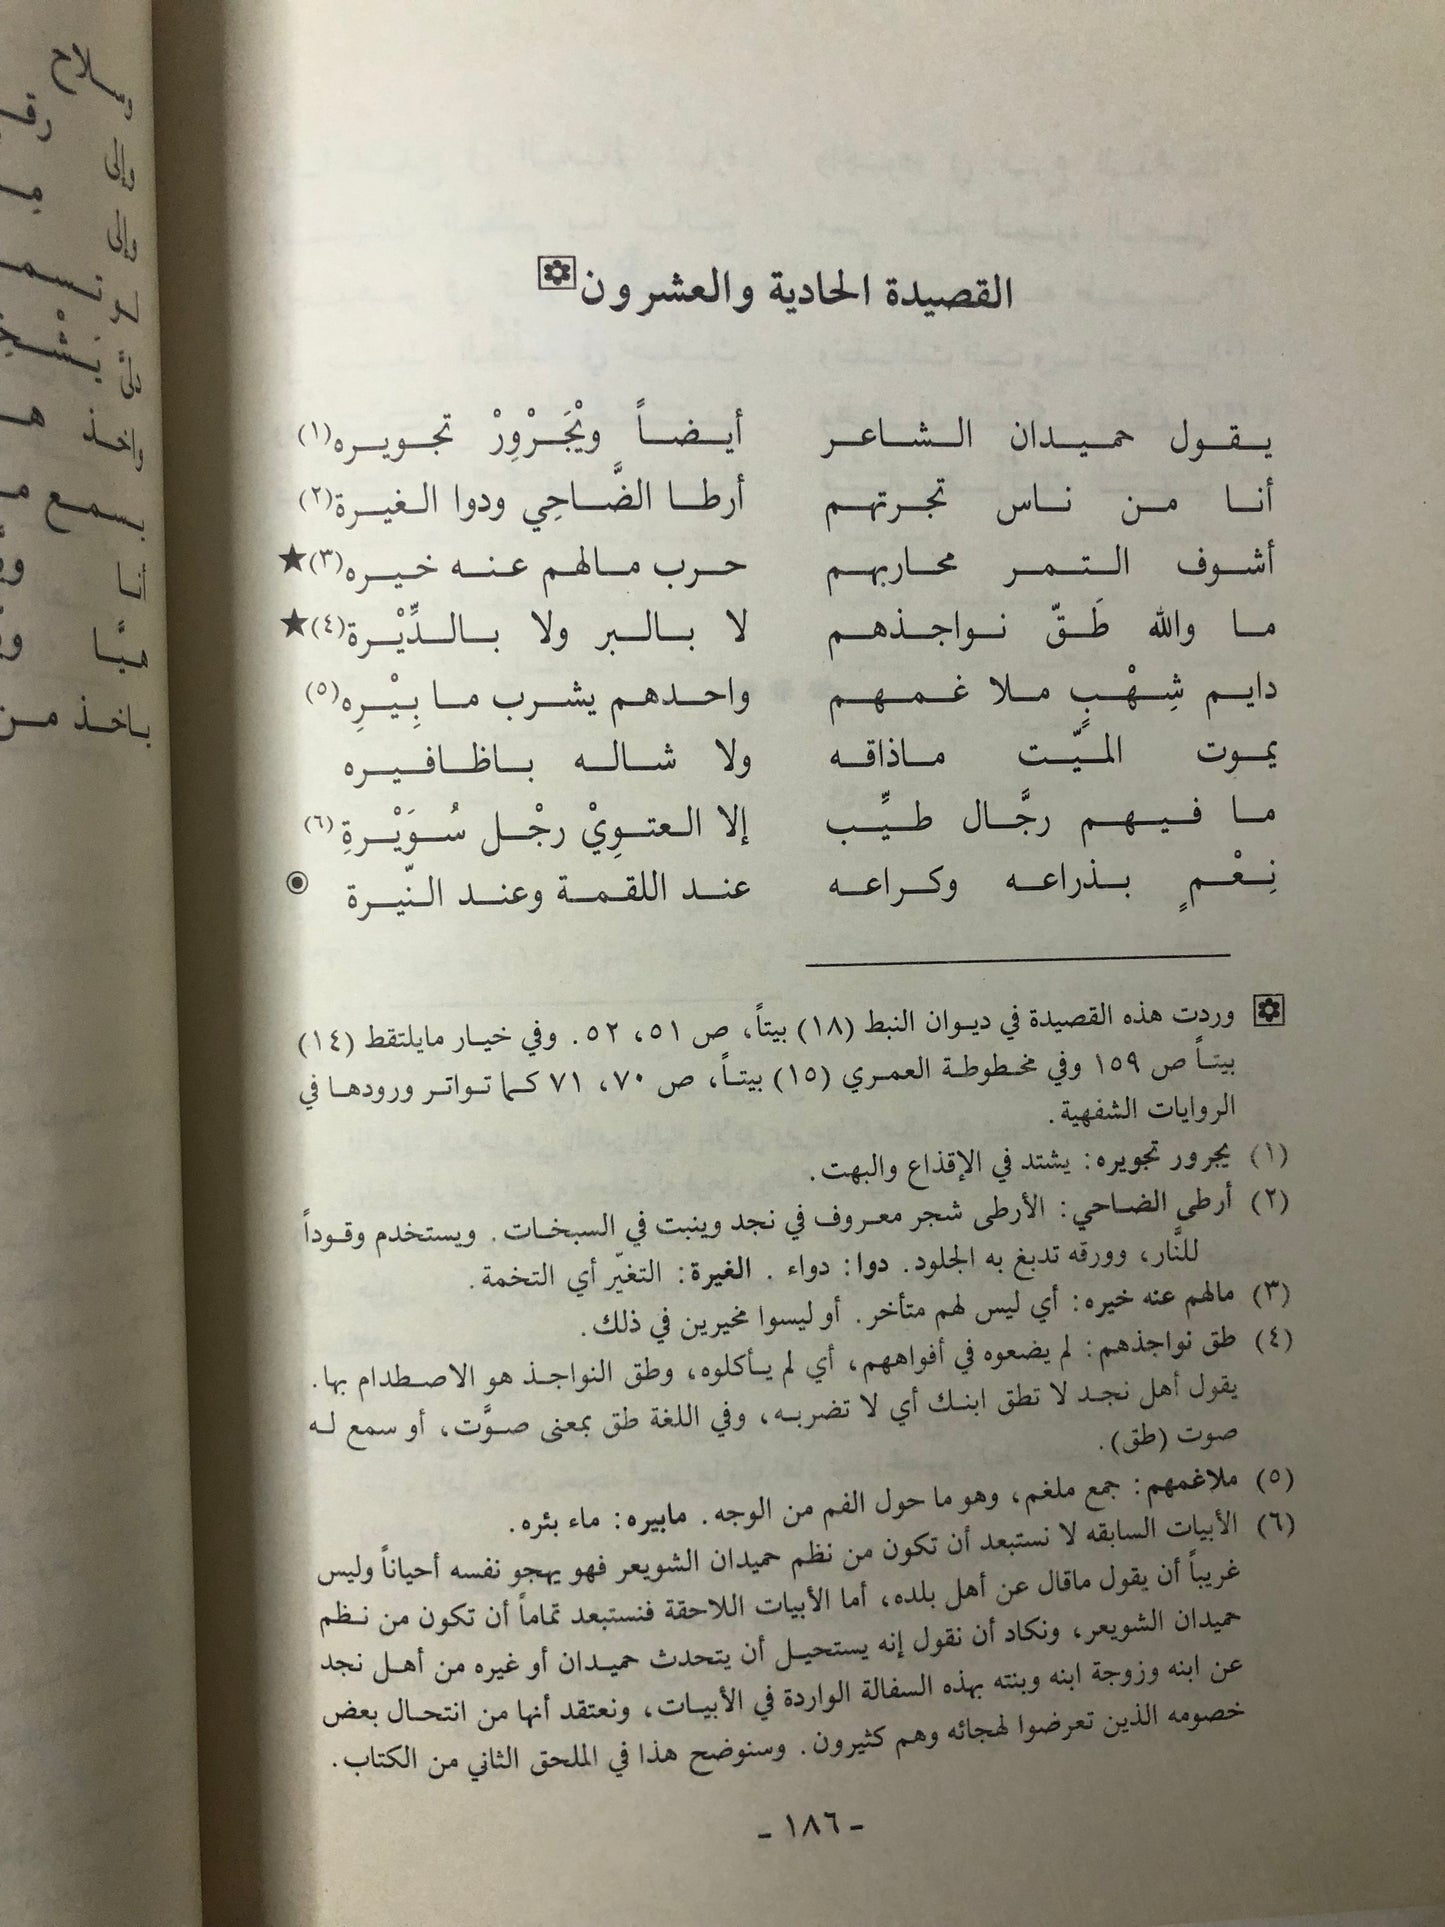 وسلاح
وإلى
وإلى
بسمع
أنا
هيَّا
باخذ من
القصيدة الحادية والعشرون
يقول حميدان الشاعر أيضاً ويْجَرْوِرْ تجويره(١)
أنا من ناس تجرتهم أرطا الضَّاحِي ودوا الغيرة(٢)
أشوف التمر محاربهم حرب مالهم عنه خيره(٣)★
ما والله طَقّ نواجذهم لا بالبر ولا بالدِّيْرة(٤)★
دايم شِهْبٍ ملا غمهم واحدهم يشرب ما بِيْرِه(٥)
يموت الميّت ماذاقه ولا شاله باظافيره
ما فيهم رجَّال طيِّب إلا العتوِيْ رجْل سُوَيْرةِ(٦)
نِعْمٍ بذراعه وكراعه عند اللقمة وعند النّيرة
وردت هذه القصيدة في ديوان النبط (١٨) بيتاً، ص ٥١، ٥٢. وفي خيار مايلتقط (١٤)
بيتاً ص ١٥٩ وفي مخطوطة العمري (١٥) بيتاً، ص ٧٠، ٧١ كما تواتر ورودها في
الروايات الشفهية.
(١) يجرور تجويره: يشتد في الإقذاع والبهت.
(٢) أرطى الضاحي: الأرطى شجر معروف في نجد وينبت في السبخات. ويستخدم وقوداً
للنَّار، وورقه تدبغ به الجلود. دوا: دواء. الغيرة: التغيّر أي التخمة.
(٣) مالهم عنه خيره: أي ليس لهم متأخر. أو ليسوا مخيرين في ذلك.
(٤) طق نواجذهم: لم يضعوه في أفواههم، أي لم يأكلوه، وطق النواجذ هو الاصطدام بها.
يقول أهل نجد لا تطق ابنك أي لا تضربه، وفي اللغة طق بمعنى صوَّت، أو سمع له
صوت (طق).
(٥) ملاغمهم: جمع ملغم، وهو ما حول الفم من الوجه. مابيره: ماء بئره.
(٦) الأبيات السابقه لا نستبعد أن تكون من نظم حميدان الشويعر فهو يهجو نفسه أحياناً وليس
غريباً أن يقول ماقال عن أهل بلده، أما الأبيات اللاحقة فنستبعد تماماً أن تكون من نظم
حميدان الشويعر، ونكاد أن نقول إنه يستحيل أن يتحدث حميدان أو غيره من أهل نجد
عن ابنه وزوجة ابنه وبنته بهذه السفالة الواردة في الأبيات، ونعتقد أنها من انتحال بعض
خصومه الذين تعرضوا لهجائه وهم كثيرون. وسنوضح هذا في الملحق الثاني من الكتاب.
- ١٨٦ -